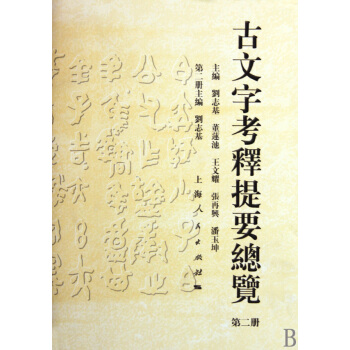 古文字考釋提要總覽
第二册
主編 劉志基 董蓮池 王文耀 張再興 潘玉坤
第二册主編 劉志基
上海人民出版社
B